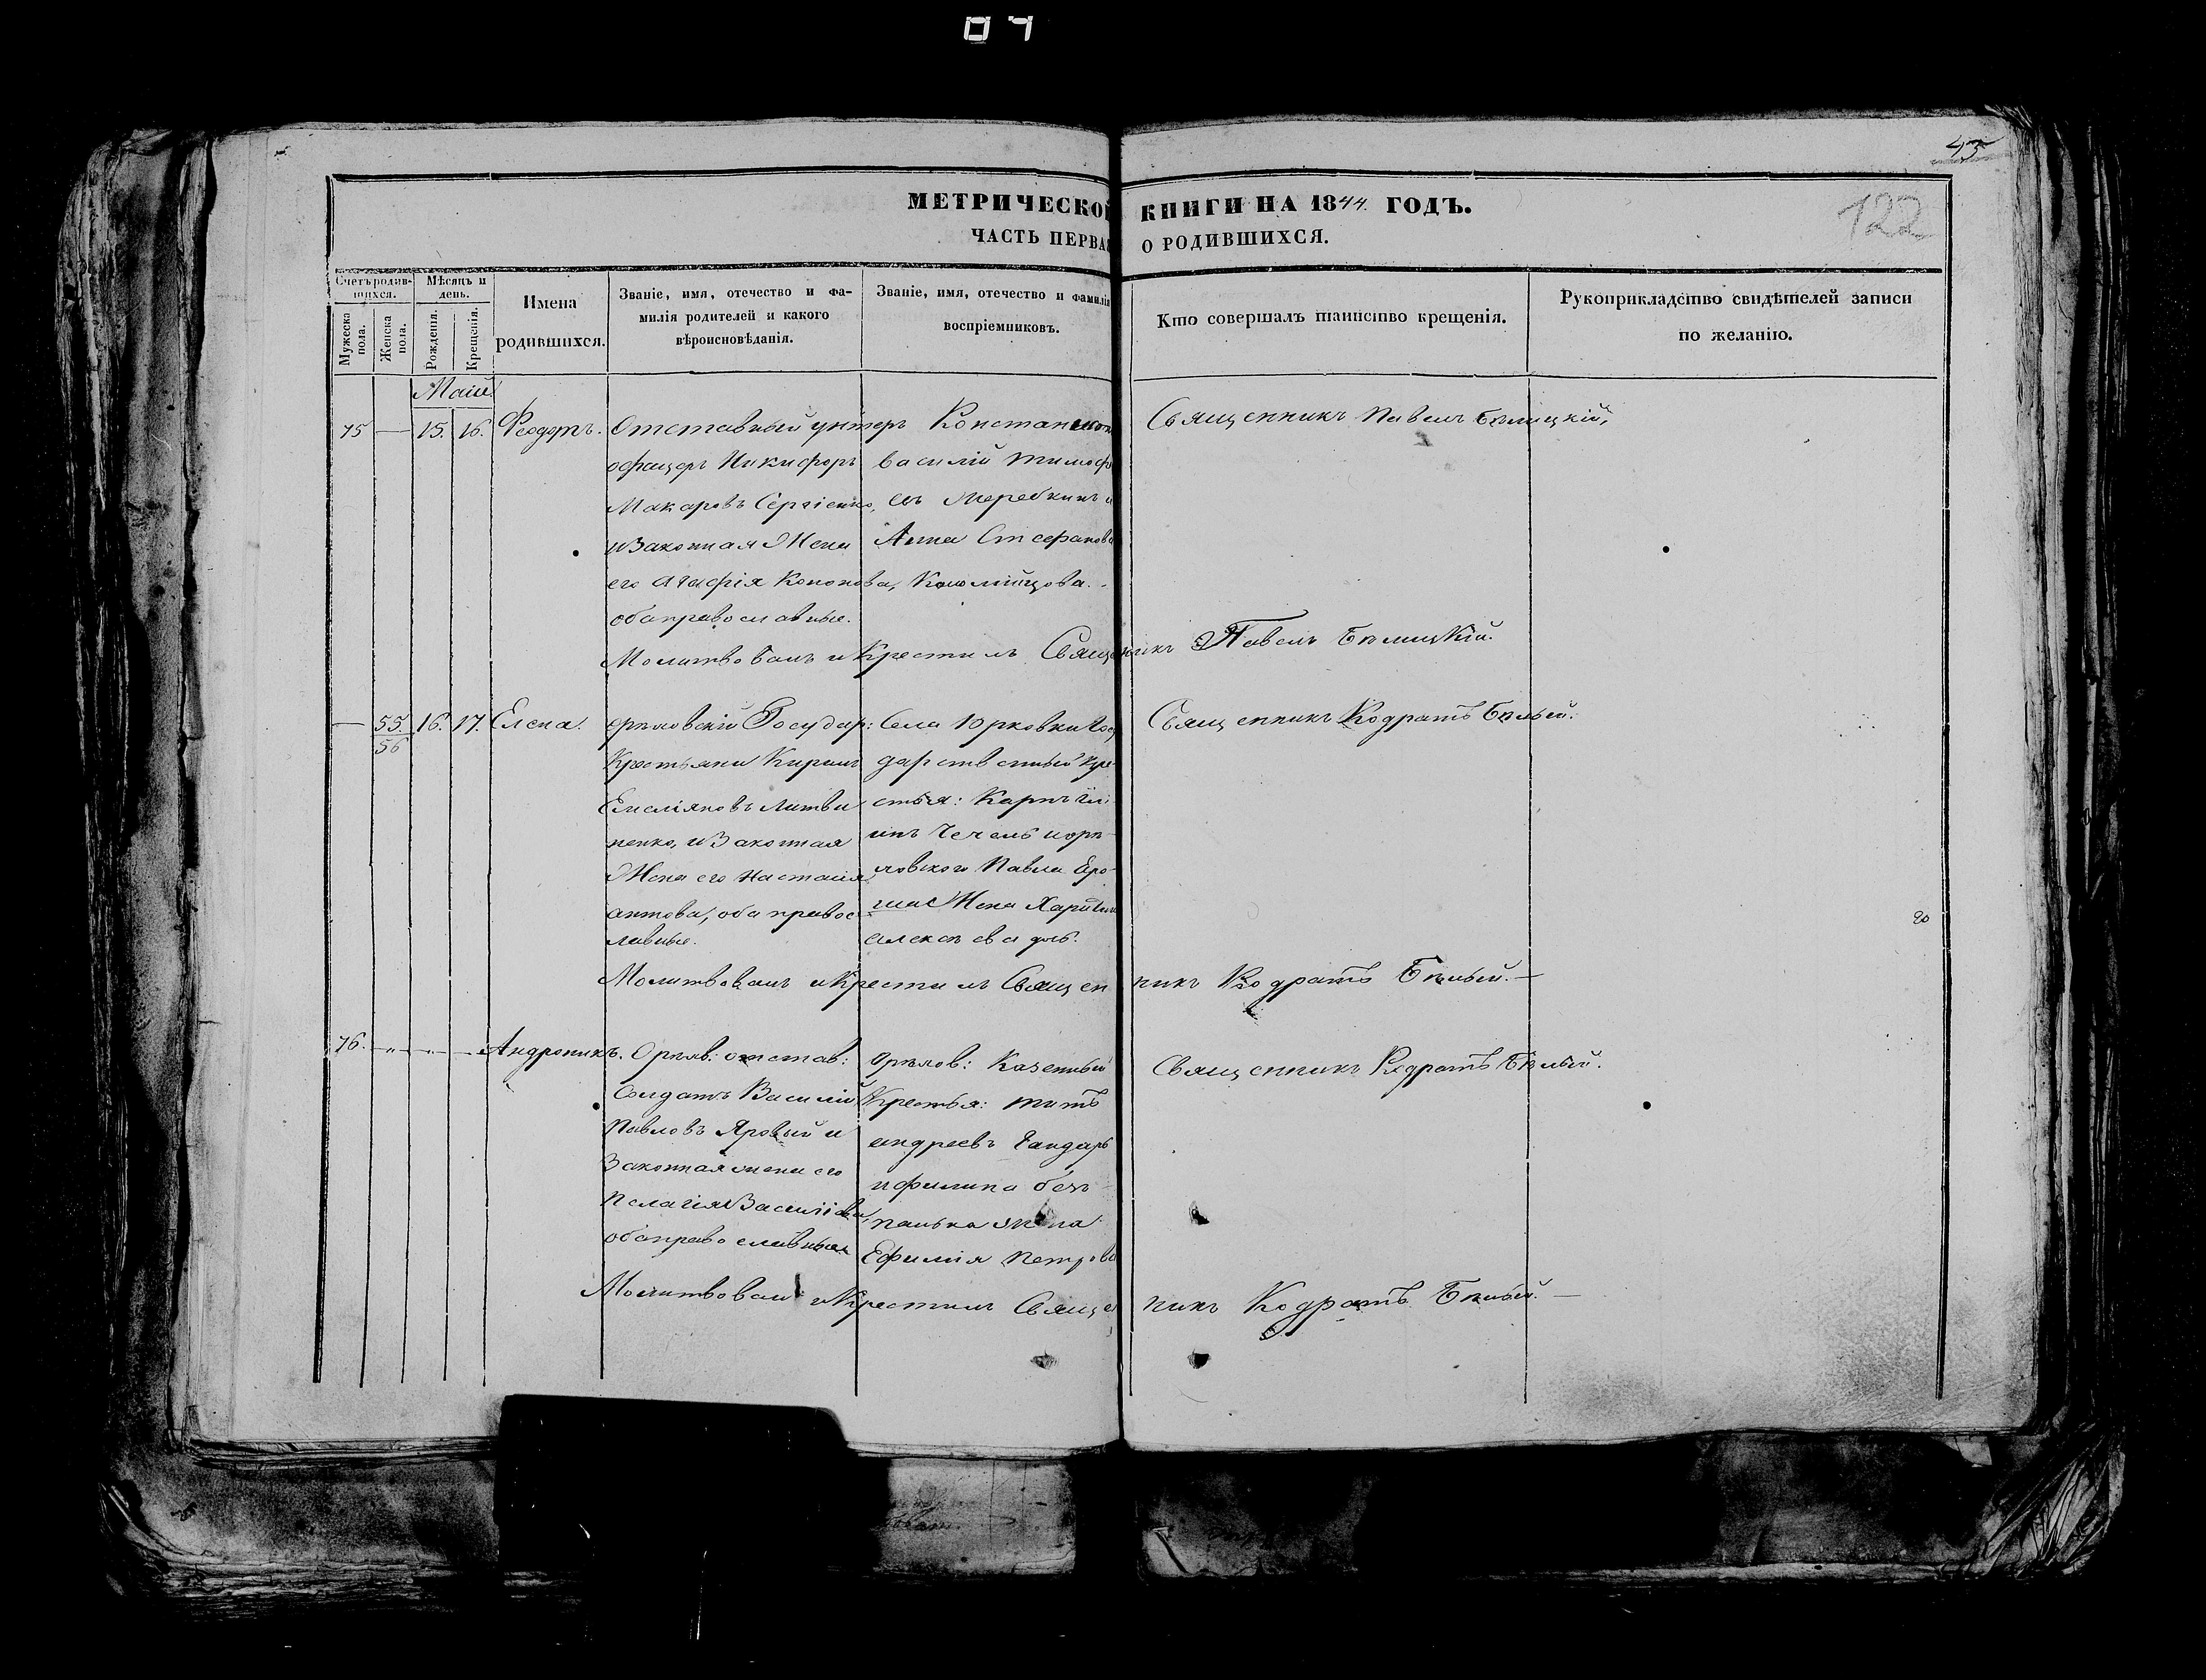 45
122
МЕТРИЧЕСКОЙ КНИГИ НА 1844. ГОДЪ.
ЧАСТЬ ПЕРВАЯ О РОДИВШИХСЯ.
Счетъ родившихся.
Мужеска пола.
Женска пола.
Мѣсяцъ и день.
Рожденія.
Крещенія.
Имена
родившихся.
Званіе, имя, отечество и фа-
милія родителей и какого
вѣроисповѣданія.
Званіе, имя, отечество и фамилія
воспріемниковъ.
Кто совершалъ таинство крещенія.
Рукоприкладство свидѣтелей записи
по желанію.
Маія
75 — 15. 16. Феодоръ.
Отставный унтеръ
офицеръ Никифоръ
Макаровъ Сергіенко,
и законная Жена
его Агафія Кононова,
оба православные.
Василій Тимофе
евъ
Анна Стефанова
Коломійцова.
Священникъ Павелъ Бѣлицкій,
Молитвовалъ и Крестилъ Священникъ Павелъ Бѣлицкій.
— 55. 16. 17. Елена.
56
орѣловскій Государ:
Крестьянинъ Кирилъ
Емеліяновъ Литви
ненко, и Законная
Жена его Настасія
антова, оба правос
лавные.
Села Юрковки Госу
дарственный Кре
стья: Карпъ
ловскаго Павла Еро
Жена
Священникъ Кодратъ Бѣлый.
Молитвовалъ и Крестилъ Священникъ Кодратъ Бѣлый. —
76. — „ — „ — Андроникъ.
Орѣлов: отстав:
Солдатъ Василій
Павловъ Яровый и
Законная жена его
Пелагія Василіева,
оба православныя
Орѣлов: Казенный
Крестья: Титъ
андреевъ
и филипа без
палька жена
Ефимія Петрова
Священникъ Кодратъ Бѣлый.
Молитвовалъ и Крестилъ Священникъ Кодратъ Бѣлый. —